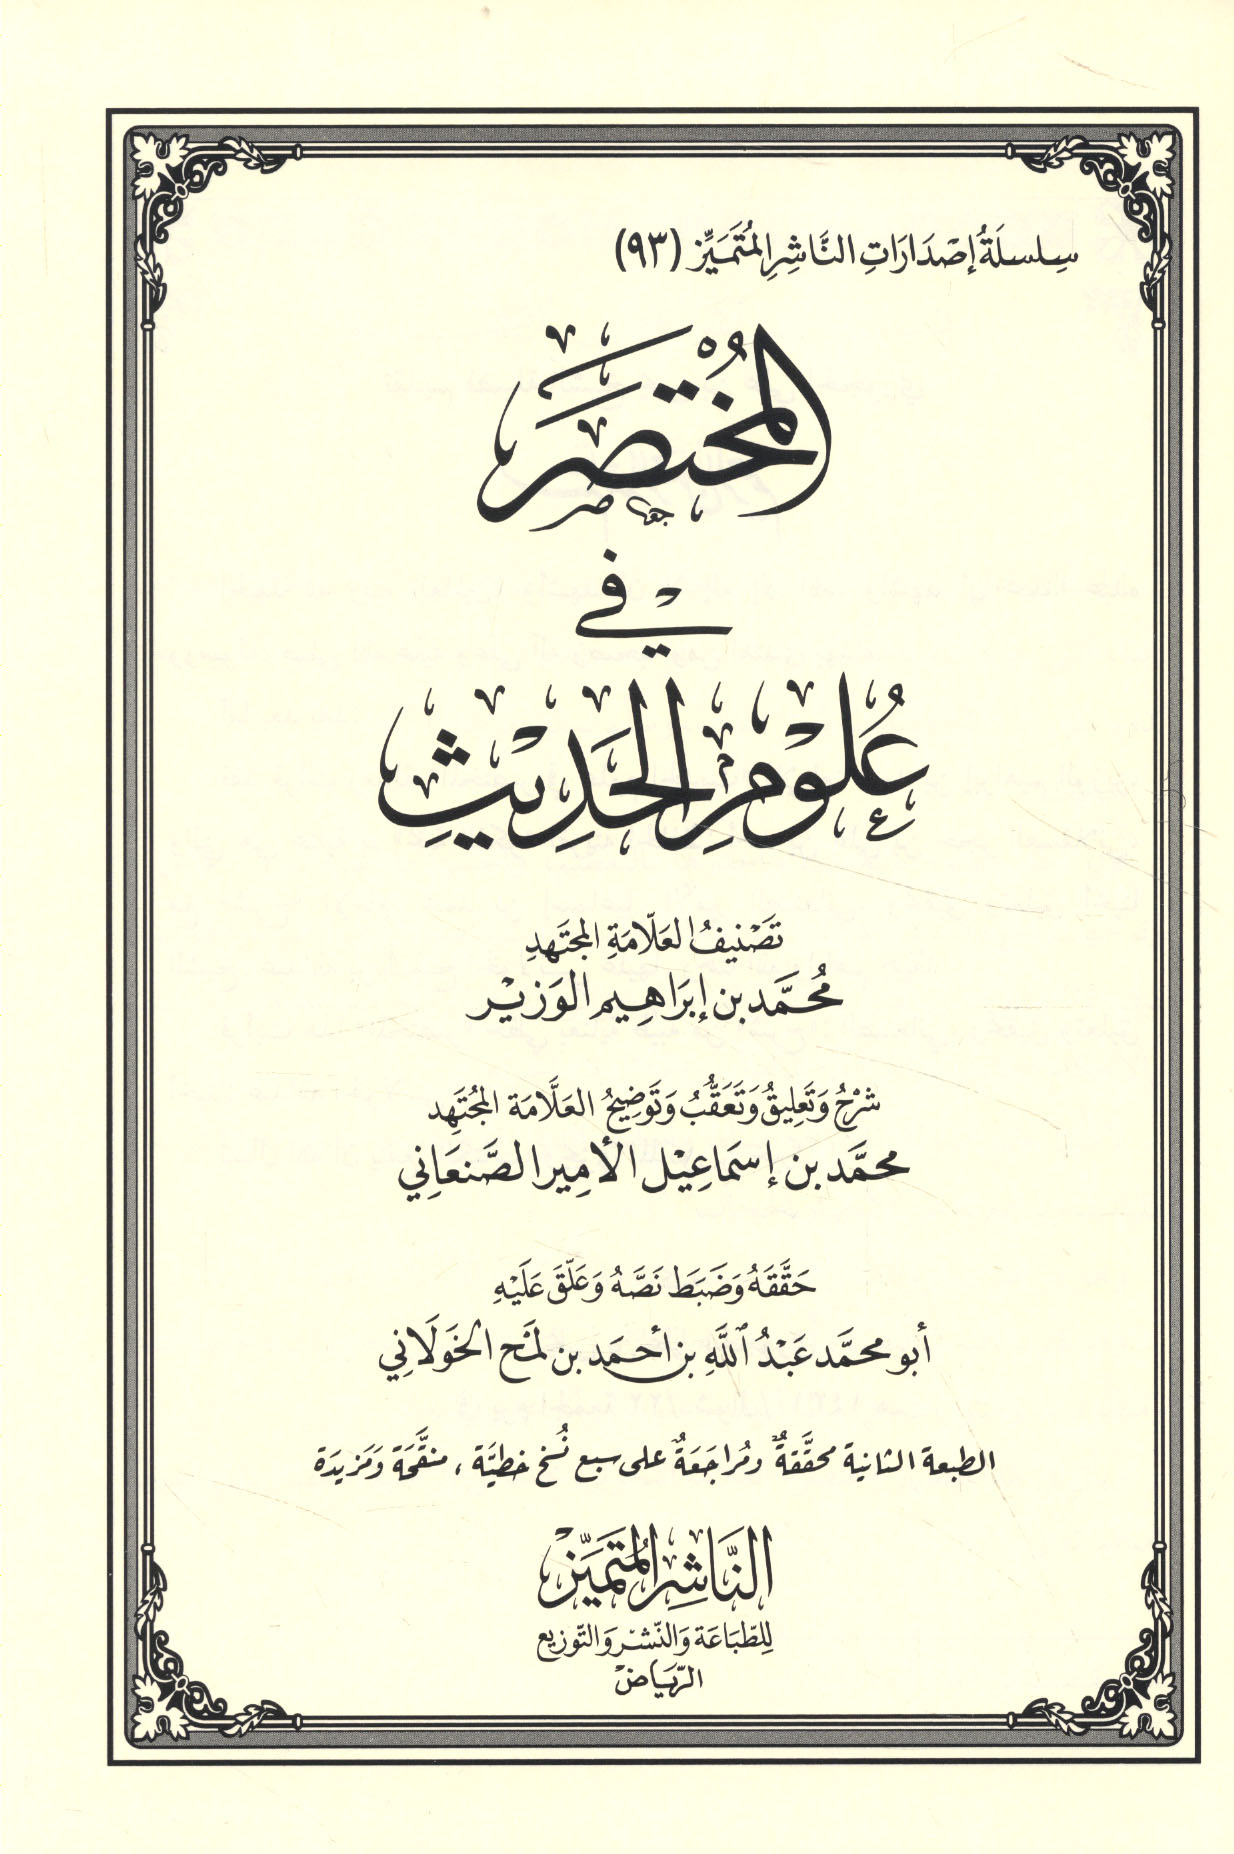 سِلسلَةُ إصْدَارَاتِ النَّاشِرِ المُتَمَيِّز (٩٣)
المُخْتَصَر
في
عُلُوْمِ الحَدِيْثِ
تَصْنِيفُ العَلّامَةِ المجتَهدِ
مُحَمَّد بن إبرَاهِيم الوَزيْر
شَرْحُ وَتَعلِيقُ وَتَعَقُّبُ وَتَوضِيحُ العَلَّامَة المُجْتَهِد
محمَّد بن إسمَاعِيْل الأمِير الصَّنعَاني
حَقَّقَهُ وَضَبَط نَصَّهُ وَعَلّقَ عَلَيْهِ
أبو محمَّد عَبْدُ اللَّهِ بن أحمَد بن لمح الخَولَاني
الطبعة الثانية محقَّقةٌ ومُراجَعَةٌ على سبع نُسخ خطيَّة، منقَّحَة وَمَزيدَة
النَّاشِر المُتَمَيّزْ
للطّبَاعَة وَالنّشْر وَالتّوزيع
الرّيَاضْ